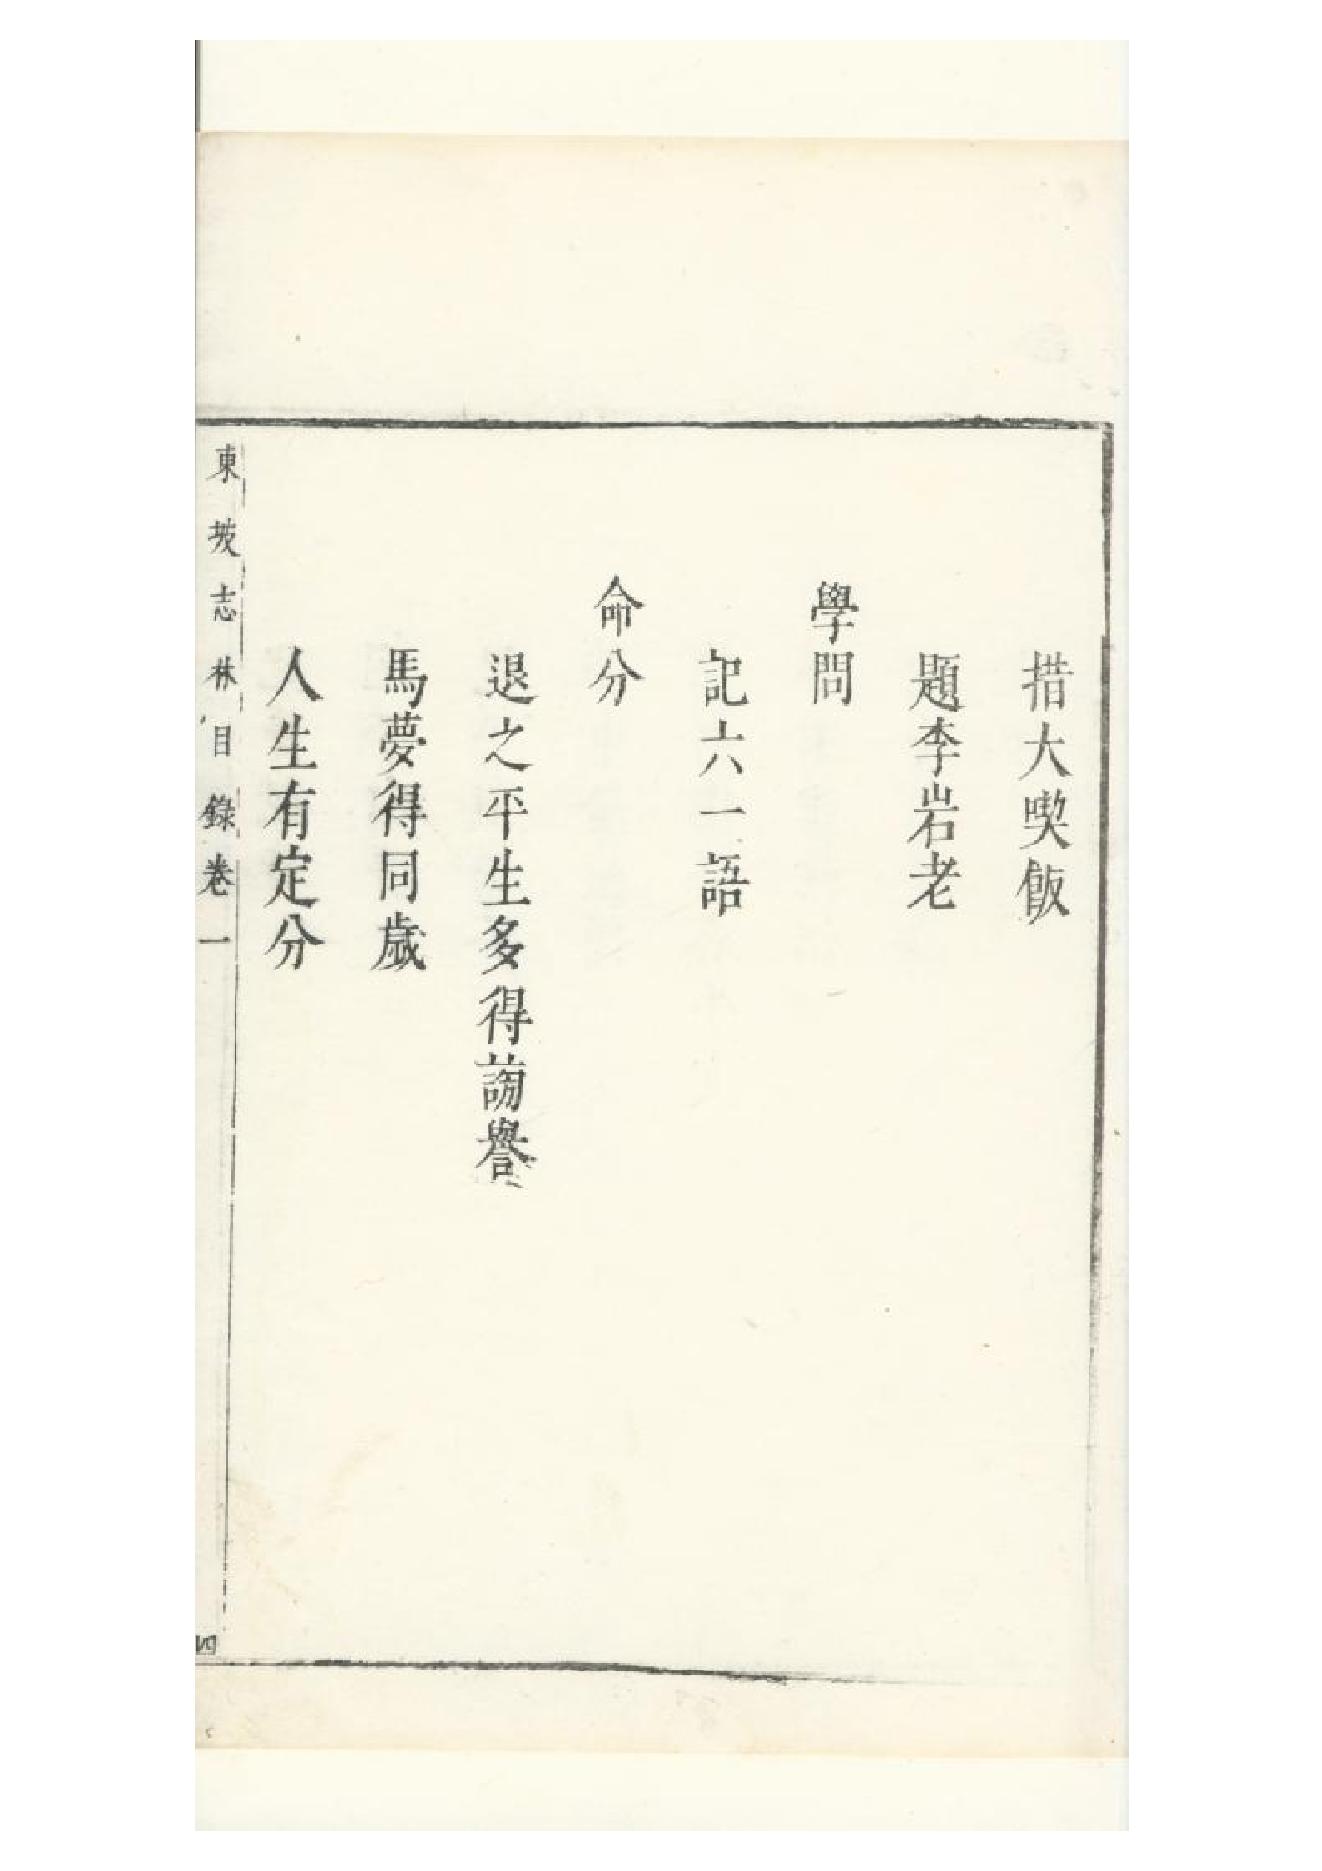 措大喫飯
題李岩老
學問
記六一語
命分
退之平生多得謗譽
馬夢得同歲
人生有定分
東坡志林目錄卷一
四